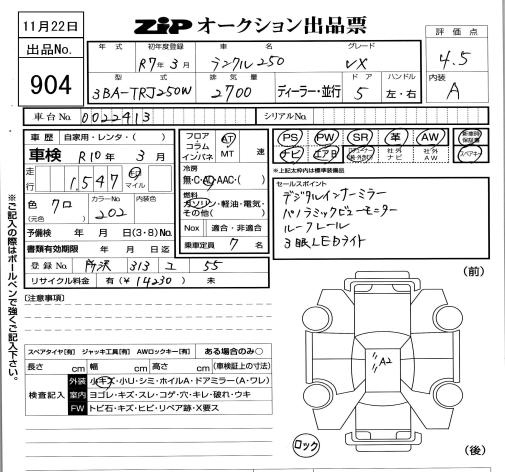 11月22日
ZIP オークション出品票
出品No.
904
年式
初年度登録
R7年3月
車名
ランクル250
グレード
VX
評価点
4.5
型式
3BA-TRJ250W
排気量
2700
ディーラー・並行
ドア
5
ハンドル
左・右
内装
A
車台No.
0022413
シリアルNo.
車歴 自家用・レンタ・( )
車検 R10年 3月
走行 1,547 km マイル
色(元色) クロ
カラーNo. 202
内装色
予備検 年 月 日(3・8)No.
書類有効期限 年 月 日迄
登録No. 所沢 313 ユ 55
リサイクル料金 有(¥14230) 未
フロア
コラム
インパネ
AT
MT
速
冷房
無・C・AC・AAC・( )
燃料
ガソリン・軽油・電気・
その他( )
Nox 適合・非適合
乗車定員 7 名
PS PW SR 革 AW
ナビ エアB
社外ナビ
社外AW
新車時保証書
スペアキー
※上記太枠内は標準装備品
セールスポイント
デジタルインナーミラー
パノラミックビューモニター
ルーフレール
3眼LEDライト
※ご記入の際はボールペンで強くご記入下さい。
[注意事項]
スペアタイヤ[有] ジャッキ工具[有] AWロックキー[有] ある場合のみ○
長さ cm 幅 cm 高さ cm (車検証上の寸法)
検査記入
外装 小キズ・小U・シミ・ホイルA・ドアミラー(A・ワレ)
室内 ヨゴレ・キズ・スレ・コゲ・穴・キレ・破れ・ウキ
FW トビ石・キズ・ヒビ・リペア跡・X要ス
(前)
A2
ロック
(後)